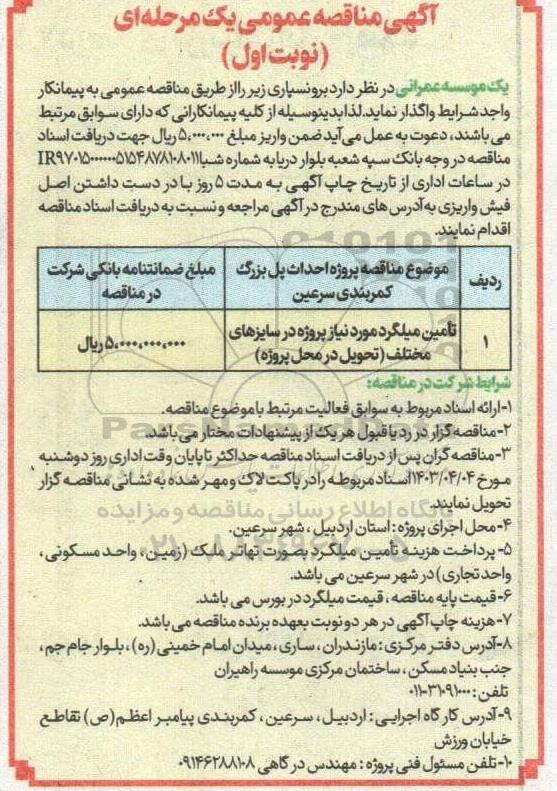 آگهی مناقصه عمومی یک مرحله‌ای
(نوبت اول)
یک موسسه عمرانی در نظر دارد برونسپاری زیر رااز طریق مناقصه عمومی به پیمانکار
واجد شرایط واگذار نماید. لذا بدینوسیله از کلیه پیمانکارانی که دارای سوابق مرتبط
می باشند، دعوت به عمل می آید ضمن واریز مبلغ ۵،۰۰۰،۰۰۰ ریال جهت دریافت اسناد
مناقصه در وجه بانک سپه شعبه بلوار دریا به شماره شبا
در ساعات اداری از تاریخ چاپ آگهی به مدت ۵ روز با در دست داشتن اصل
فیش واریزی به آدرس های مندرج در آگهی مراجعه و نسبت به دریافت اسناد مناقصه
اقدام نمایند.
ردیف
موضوع مناقصه پروژه احداث پل بزرگ
کمربندی سرعین
مبلغ ضمانتنامه بانکی شرکت
در مناقصه
۱
تأمین میلگرد مورد نیاز پروژه در سایزهای
مختلف (تحویل در محل پروژه)
۵،۰۰۰،۰۰۰،۰۰۰ ریال
شرایط شرکت در مناقصه:
۱-ارائه اسناد مربوط به سوابق فعالیت مرتبط با موضوع مناقصه.
۲-مناقصه گزار در رد یا قبول هر یک از پیشنهادات مختار می باشد.
۳-مناقصه گران پس از دریافت اسناد مناقصه حداکثر تا پایان وقت اداری روز دوشنبه
مورخ ۱۴۰۳/۰۴/۰۴ اسناد مربوطه را در پاکت لاک و مهر شده به نشانی مناقصه گزار
تحویل نمایند.
۴-محل اجرای پروژه: استان اردبیل، شهر سرعین.
۵- پرداخت هزینه تأمین میلگرد بصورت تهاتر ملک (زمین، واحد مسکونی،
واحد تجاری) در شهر سرعین می باشد.
۶-قیمت پایه مناقصه، قیمت میلگرد در بورس می باشد.
۷-هزینه چاپ آگهی در هر دو نوبت بعهده برنده مناقصه می باشد.
۸-آدرس دفتر مرکزی: مازندران، ساری، میدان امام خمینی (ره)، بلوار جام جم،
جنب بنیاد مسکن، ساختمان مرکزی موسسه راهیران
تلفن: ۰۱۱-۳۱۰۹۱۰۰۰
۹-آدرس کارگاه اجرایی: اردبیل، سرعین، کمربندی پیامبر اعظم (ص) تقاطع
خیابان ورزش
۱۰-تلفن مسئول فنی پروژه: مهندس درگاهی ۰۹۱۴۶۲۸۸۱۰۸